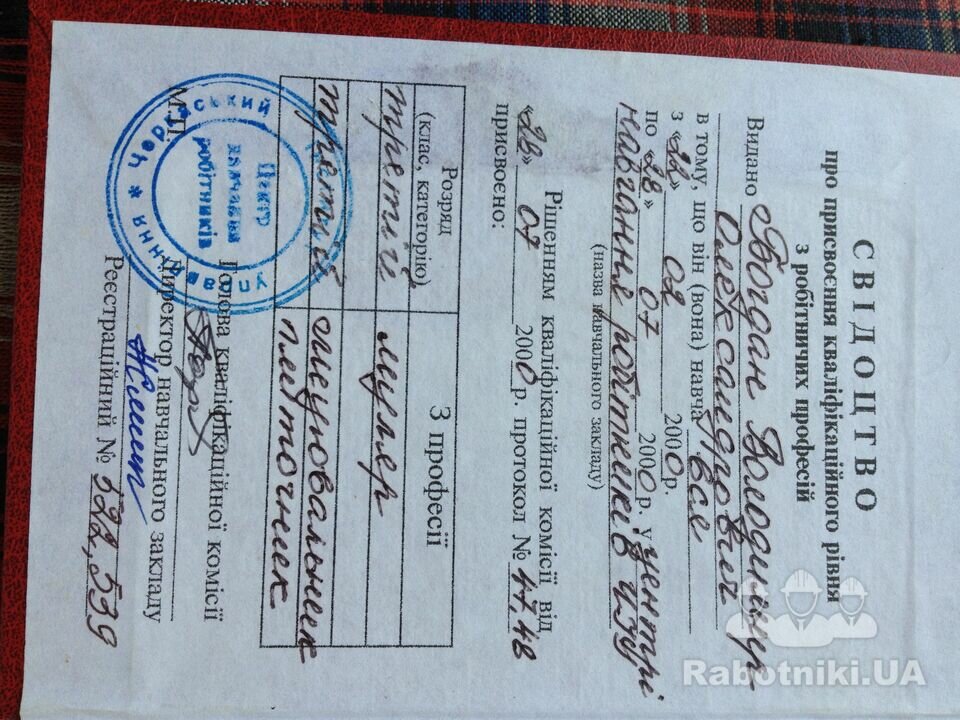 СВІДОЦТВО
про присвоєння кваліфікаційного рівня
з робітничих професій
Видано Богдан Володимир
Олександрович
в тому, що він (вона) навча вся
з «22» 02 2000р.
по «28» 07 2000р. у центрі
навчання робітників ЧЗРІ
(назва навчального закладу)
Рішенням кваліфікаційної комісії від
«28» 07 2000р. протокол № 47,48
присвоєно:
Розряд
(клас, категорію)
З професії
третій муляр
третій лицювальник
плиточник
Голова кваліфікаційної комісії
М.П.
Директор навчального закладу
Реєстраційний № 522, 539
Черкаський
Центр
навчання
робітників
Rabotniki.UA